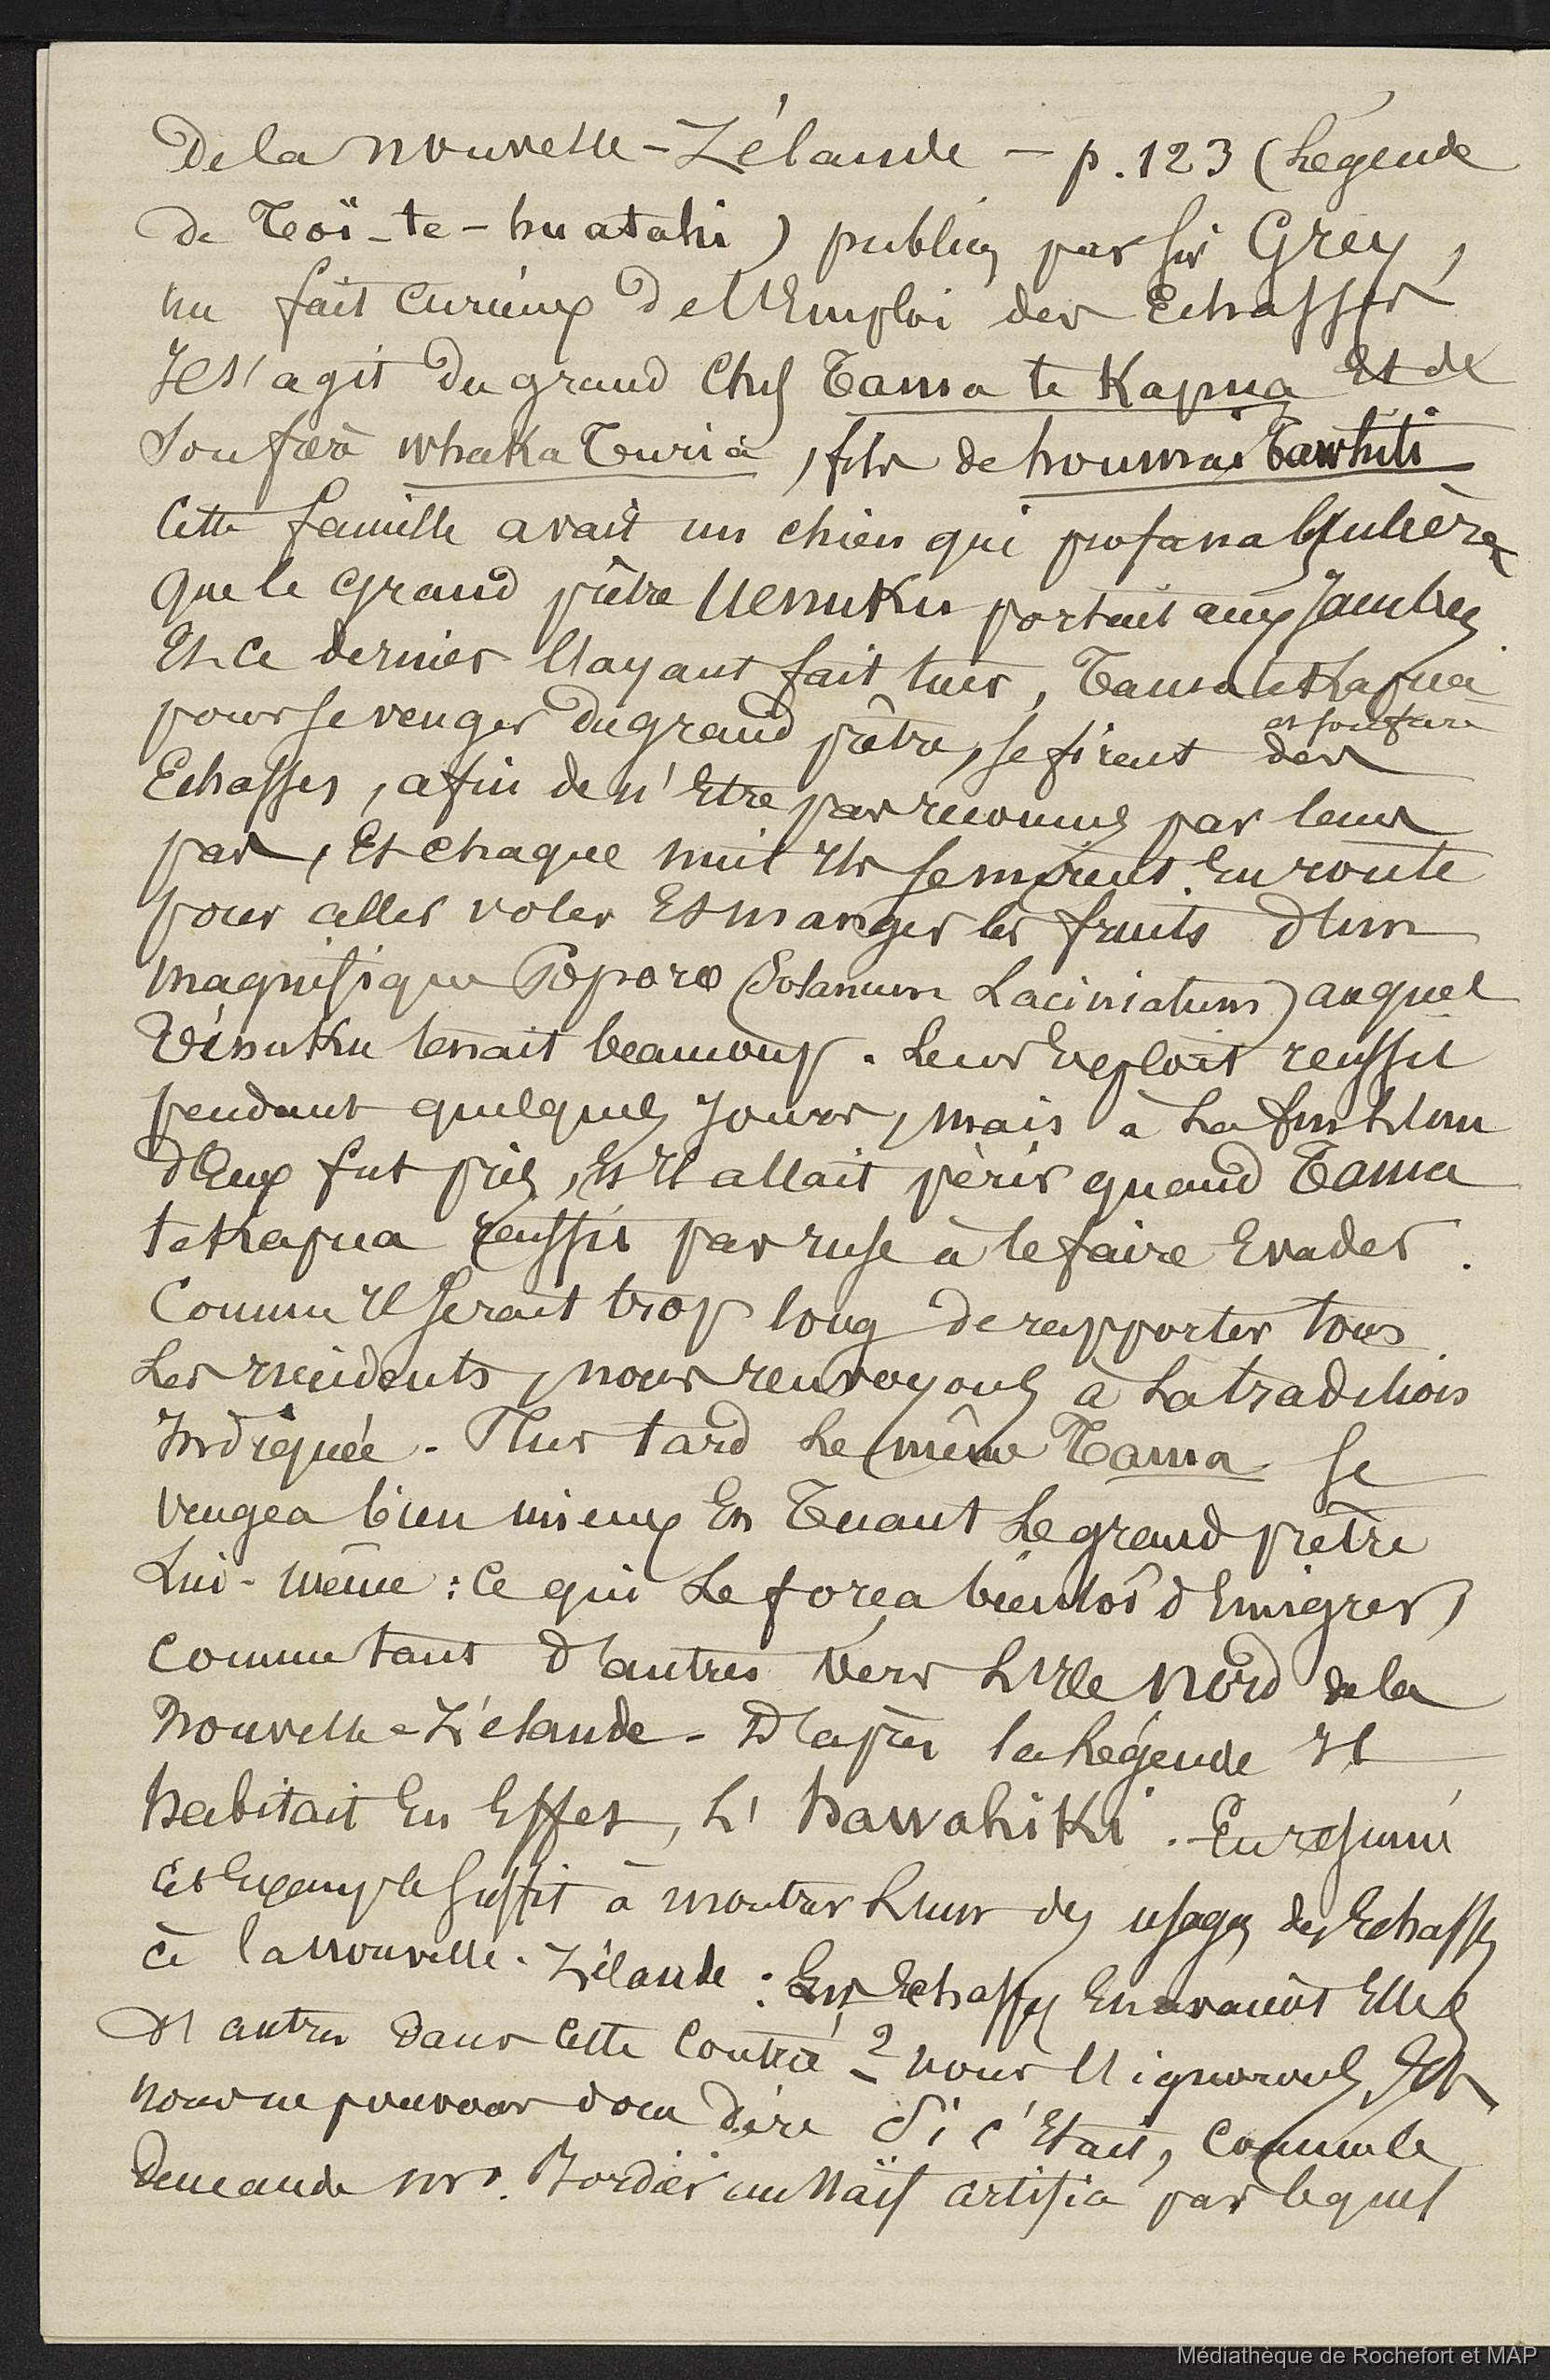 De la nouvelle-Zélande – p. 123 (Légende
de Toï-te-huatahi) publiés par Sir Grey,
un fait curieux de l'Emploi des Echasses
Il s'agit du grand Chef Tama te Kapua et de
son frère whaka Turia, fils de houmai Tawhiti
Cette famille avait un chien qui profana l'
que le grand prêtre Uenuku portait aux Jambes
Et ce dernier l'ayant fait tuer, Tama te Kapua
et son frère
pour se venger du grand prêtre, se firent des
Echasses, afin de n'Etre pas reconnus par leurs
pas, Et chaque nuit Ils se mirent En route
pour aller voler Et manger les fruits d'un
magnifique Poporo (Solanum Laciniatum) auquel
Uénuku tenait beaucoup. Leur Exploit reussit
pendant quelques Jours, mais à La fin L'un
d'Eux fut pris, Et Il allait périr quand Tama
te Kapua reussit par ruse à le faire Evader.
Comme Il serait trop long de rapporter tous
Les Incidents, nous renvoyons à La tradition
Indiquée. Plus tard Le même Tama se
vengea bien mieux En Tuant Le grand prêtre
Lui-même : ce qui Le força bientôt d'Emigrer,
comme tant d'autres vers L'Ile Nord de la
Nouvelle-Zélande. D'après la Légende Il
habitait En Effet, L'hawahiki. En resumé
cet Exemple suffit à montrer L'un des usages des Echasses
à la Nouvelle-Zélande : Les Echasses En avaient Elles
d'autres dans Cette Contrée ? nous l'ignorons, Et
nous ne pouvons donc dire Si c'Etait, Comme le
demande Mr. Bordier un Naïf artifice par lequel